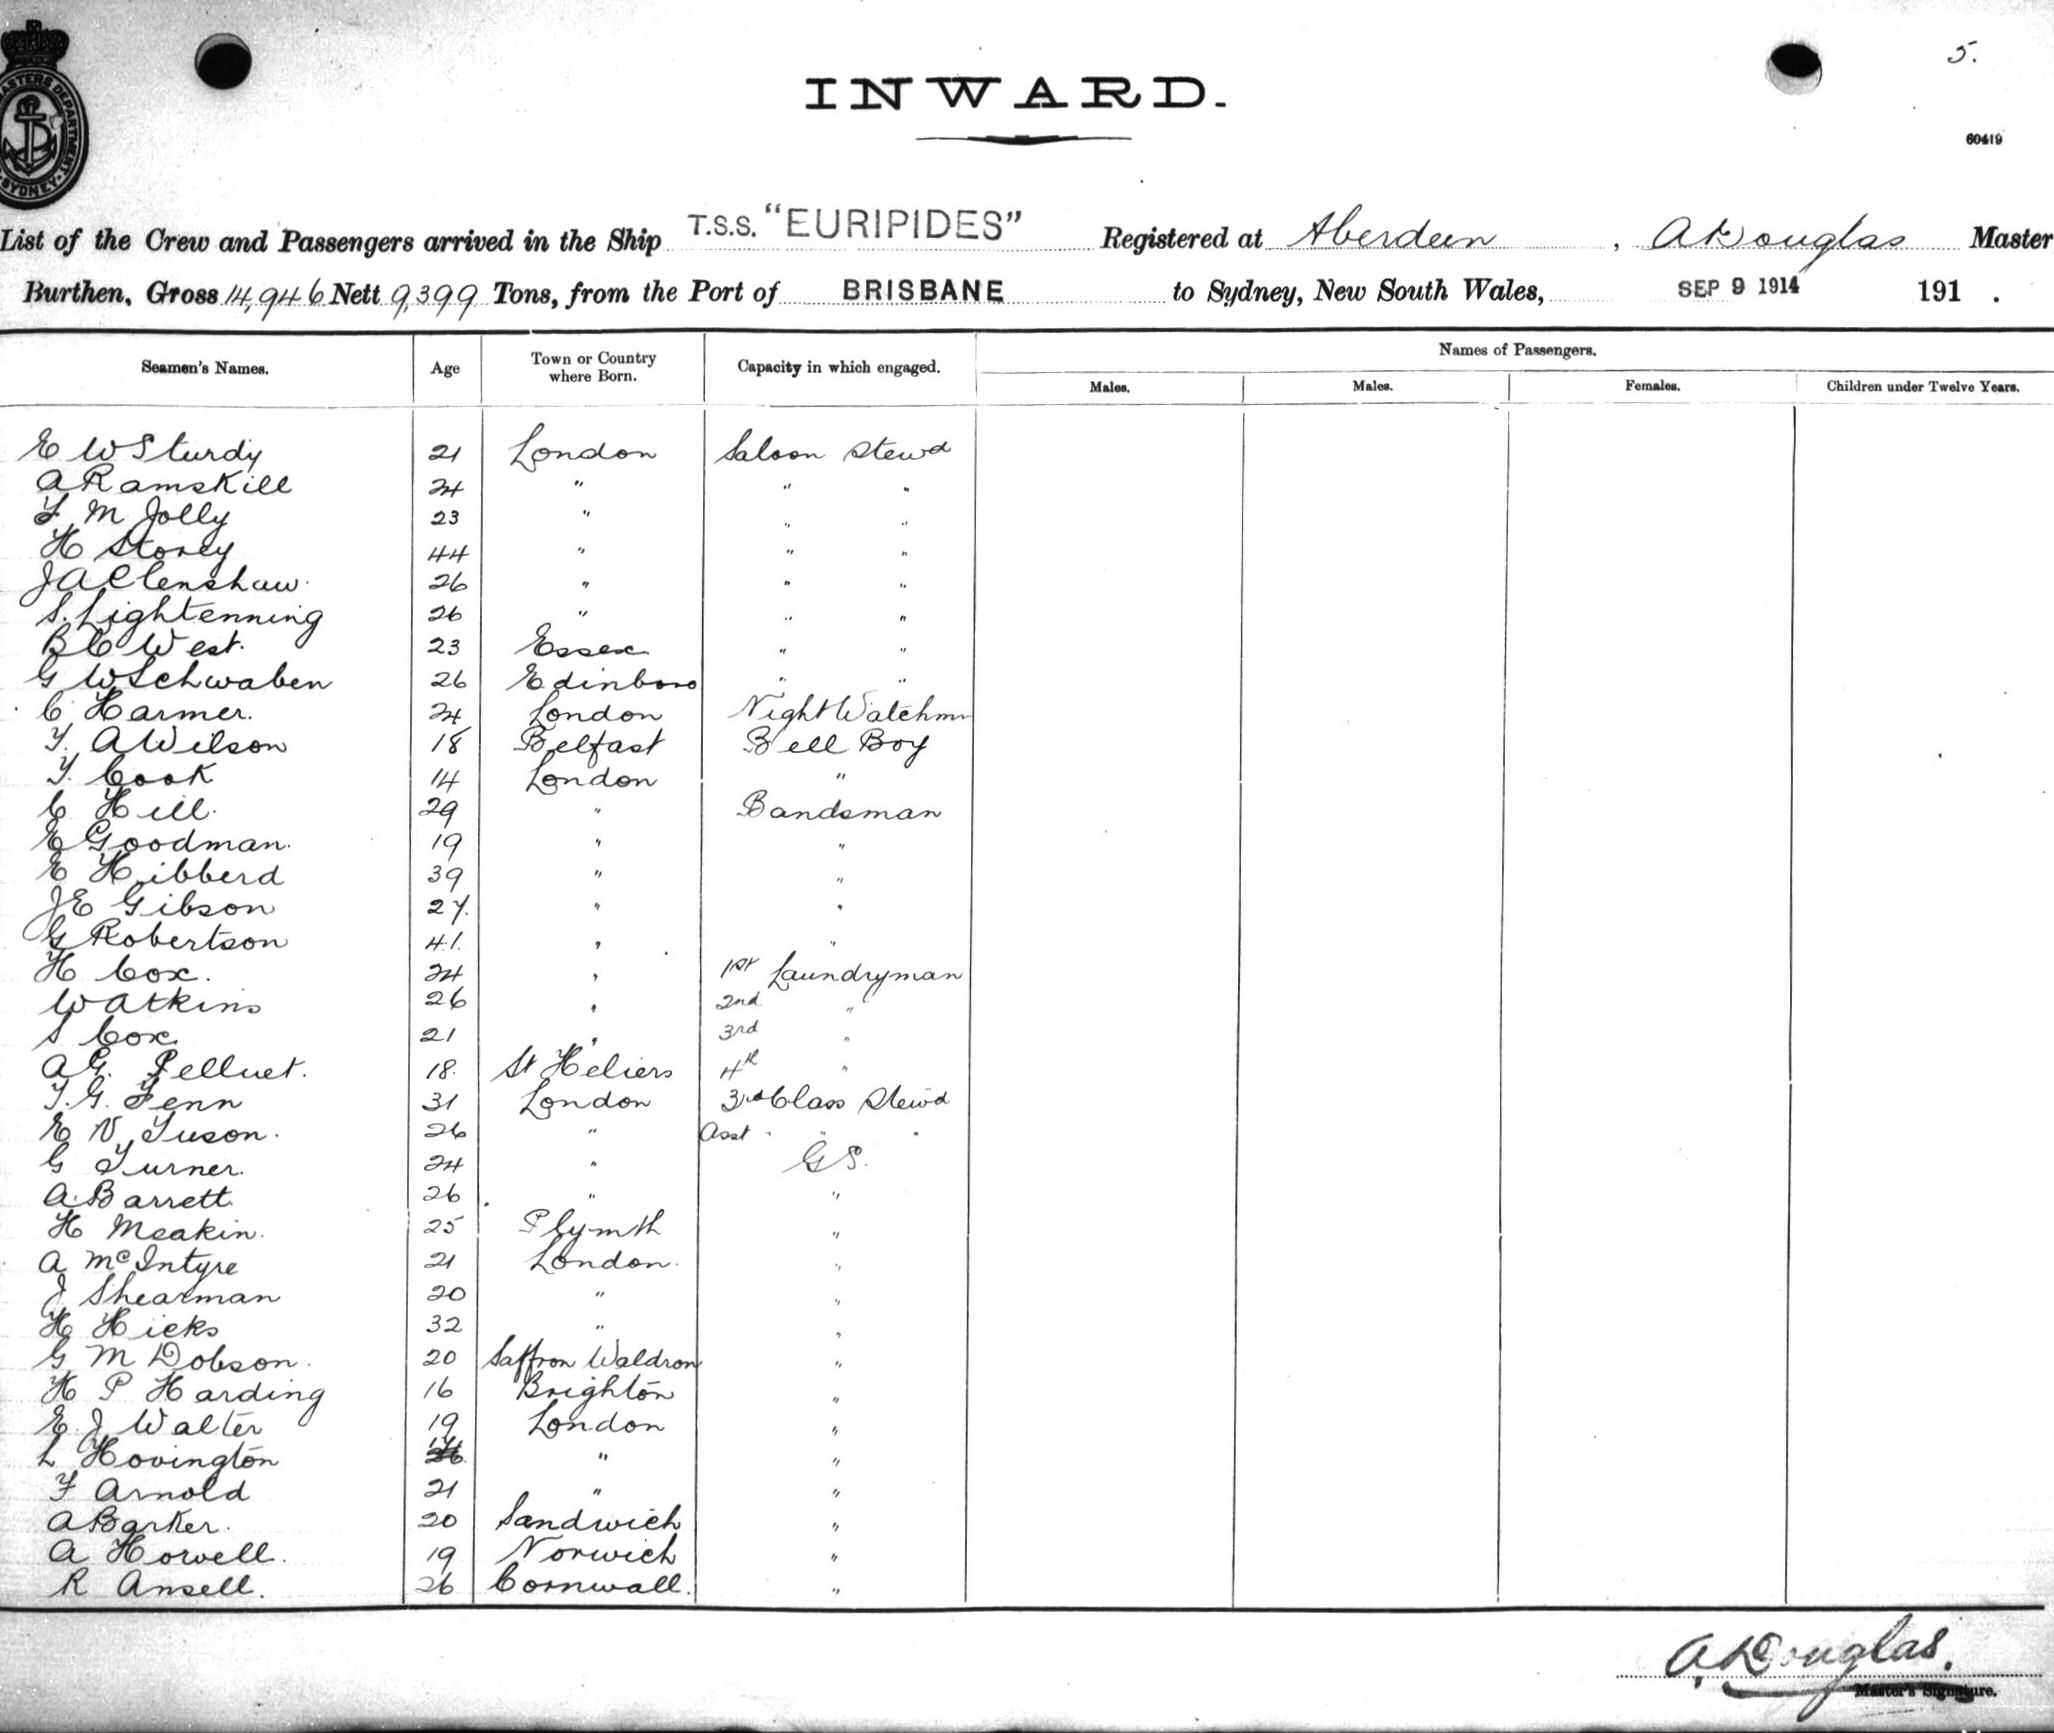 5.
INWARD.
60419
MASTERS DEPARTMENT SYDNEY
List of the Crew and Passengers arrived in the Ship T.S.S. "EURIPIDES" Registered at Aberdeen, A Douglas Master
Burthen, Gross 14,946 Nett 9,399 Tons, from the Port of BRISBANE to Sydney, New South Wales, SEP 9 1914 191 .
Seamen's Names. Age Town or Country where Born. Capacity in which engaged. Names of Passengers.
Males. Males. Females. Children under Twelve Years.
E W Sturdy 21 London Saloon Stewd
A Ramskill 24 " " "
F M Jolly 23 " " "
H Storey 44 " " "
J A Clenshaw. 26 " " "
S. Lightenning 26 " " "
B C West. 23 Essex " "
G W Schwaben 26 Edinboro " "
C Harmer. 24 London Night Watchmn
T. A Wilson 18 Belfast Bell Boy
T. Cook 14 London "
C Hill. 29 " Bandsman
E Goodman. 19 " "
E Hibberd 39 " "
J E Gibson 27. " "
G Robertson 41. " "
H Cox. 24 " 1st Laundryman
W Atkins 26 " 2nd "
S Cox. 21 " 3rd "
A G. Pelluet. 18. St Heliers 4th "
T. G. Fenn 31 London 3rd Class Stewd
E N Tuson. 26 " Asst " " "
G Turner. 24 " G S.
A. Barrett. 26 " "
H Meakin. 25 Plymth "
A McIntyre 21 London. "
J Shearman 20 " "
H Hicks 32 " "
G M Dobson. 20 Saffron Waldron "
H P Harding 16 Brighton "
E. J Walter 19 London "
L Hovington " "
F Arnold 21 " "
A Barker. 20 Sandwich "
A Howell. 19 Norwich "
R Ansell. 26 Cornwall. "
A. Douglas.
Master's Signature.